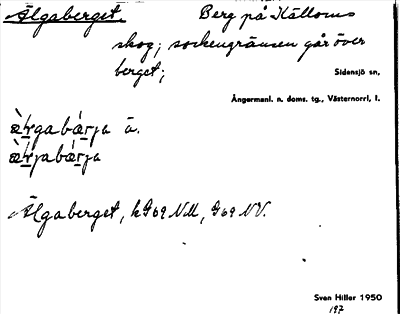 Älgaberget. Berg på Källoms
skog; sockengränsen går över
berget;
Sidensjö sn,
Ångermanl. n. doms. tg., Västernorrl, l.
ä.
Älgaberget, k
Sven Hiller 1950
197